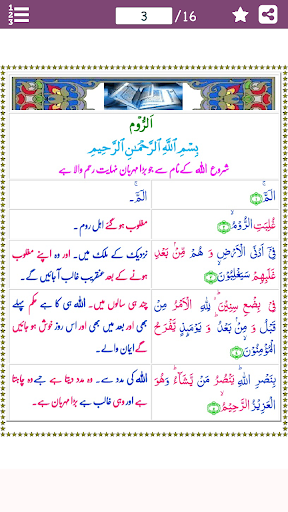 3 /16
اَلرُّوْم
بِسْمِ اللّٰهِ الرَّحْمٰنِ الرَّحِيْمِ
شروع اللہ کے نام سے جو بڑا مہربان نہایت رحم والا ہے
الٓمّٓ ۚ
الٓمّٓ۔
غُلِبَتِ الرُّوْمُ ۙ
مغلوب ہو گئے اہل روم۔
فِيْۤ اَدْنَى الْاَرْضِ وَ هُمْ مِّنْۢ بَعْدِ
غَلَبِهِمْ سَيَغْلِبُوْنَ ۙ
نزدیک کے ملک میں۔ اور وہ اپنے مغلوب
ہونے کے بعد عنقریب غالب آجائیں گے۔
فِيْ بِضْعِ سِنِيْنَ ؕ۬ لِلّٰهِ الْاَمْرُ مِنْ
قَبْلُ وَ مِنْۢ بَعْدُ ؕ وَ يَوْمَىِٕذٍ يَّفْرَحُ
الْمُؤْمِنُوْنَ ۙ
چند ہی سالوں میں۔ اللہ ہی کا ہے حکم پہلے
بھی اور بعد میں بھی، اور اس روز خوش ہو جائیں
گے ایمان والے۔
بِنَصْرِ اللّٰهِ ؕ يَنْصُرُ مَنْ يَّشَآءُ ؕ وَهُوَ
الْعَزِيْزُ الرَّحِيْمُ ۙ
اللہ کی مدد سے۔ وہ مدد دیتا ہے جسے وہ چاہتا
ہے اور وہی غالب ہے بڑا مہربان ہے۔